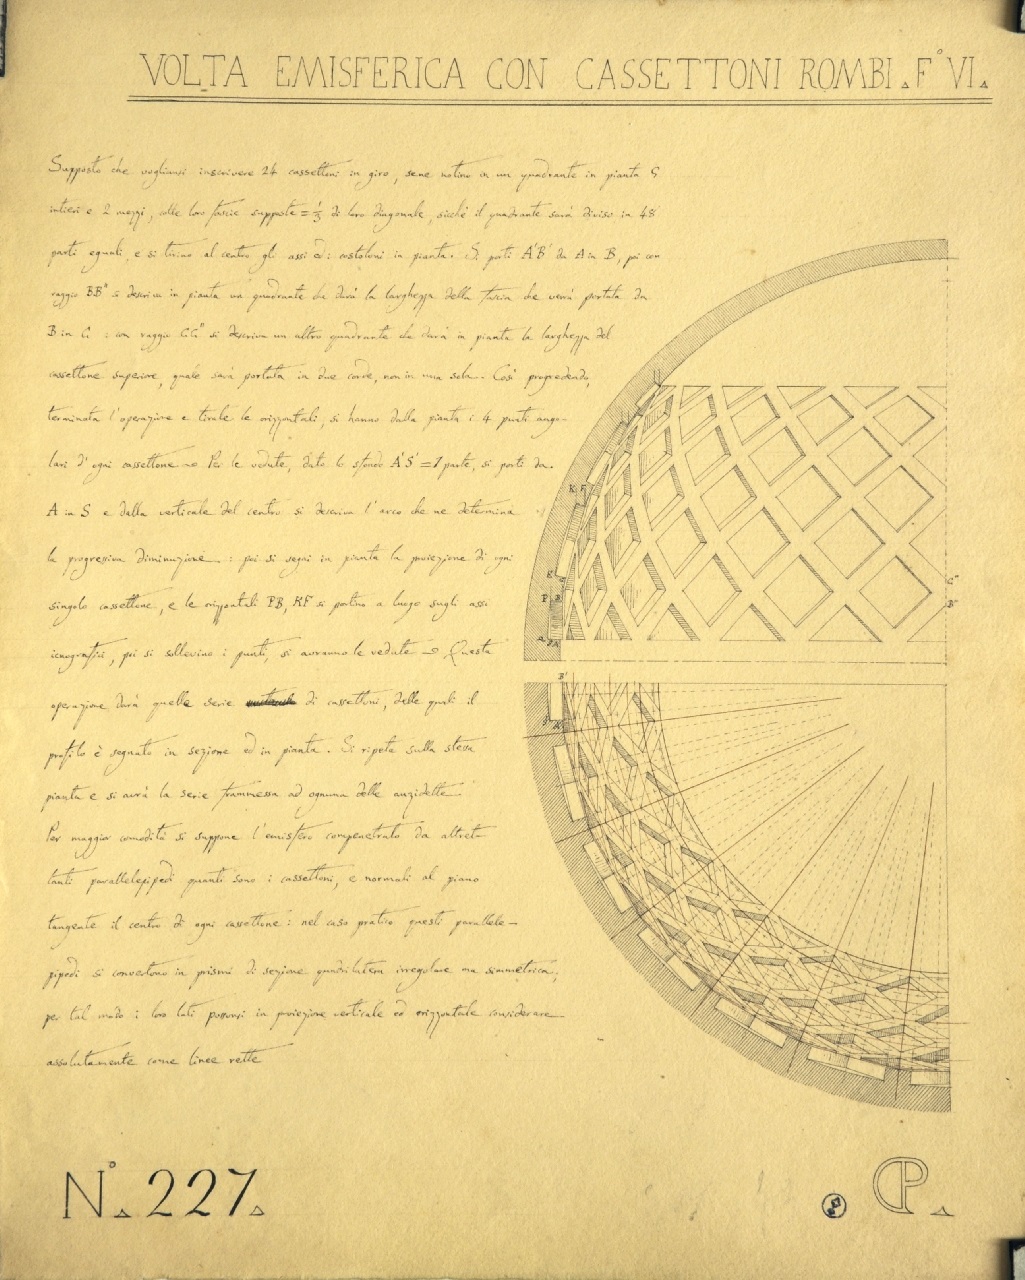 VOLTA EMISFERICA CON CASSETTONI ROMBI. F° VI.
Supposto che vogliansi inscrivere 24 cassettoni in giro, se ne notino in un quadrante in pianta 5
intieri e 2 mezzi, colle loro fascie supposte = 1/3 di loro diagonale, sicché il quadrante sarà diviso in 48
parti eguali, e si tirino al centro gli assi ed i costoloni in pianta. Si porti A'B' da A in B, poi con
raggio BB" si descriva in pianta un quadrante che darà la larghezza della fascia che verrà portata da
B in C : con raggio CC" si descriva un altro quadrante che darà in pianta la larghezza del
cassettone superiore, quale sarà portata in due corde, non in una sola. Così progredendo,
terminata l'operazione e tirate le orizzontali, si hanno dalla pianta i 4 punti ango-
lari d'ogni cassettone — Per le vedute, dato lo sfondo A'S' = 1 parte, si porti da
A in S e dalla verticale del centro si descriva l'arco che ne determina
la progressiva diminuzione : poi si segni in pianta la proiezione di ogni
singolo cassettone, e le orizzontali PB, KF si portino a luogo sugli assi
icnografici, poi si sollevino i punti, si avranno le vedute — Questa
operazione darà quella serie di cassettoni, delle quali il
profilo è segnato in sezione ed in pianta. Si ripeta sulla stessa
pianta e si avrà la serie frammessa ad ognuna delle anzidette
Per maggior comodità si suppone l'emisfero compenetrato da altret-
tanti parallelepipedi quanti sono i cassettoni, e normali al piano
tangente il centro di ogni cassettone : nel caso pratico questi parallele-
pipedi si convertono in prismi di sezione quadrilatera irregolare ma simmetrica,
per tal modo i loro lati possonsi in proiezione verticale ed orizzontale considerare
assolutamente come linee rette
K F
P B
C"
B"
B'
N° 227.
CP.